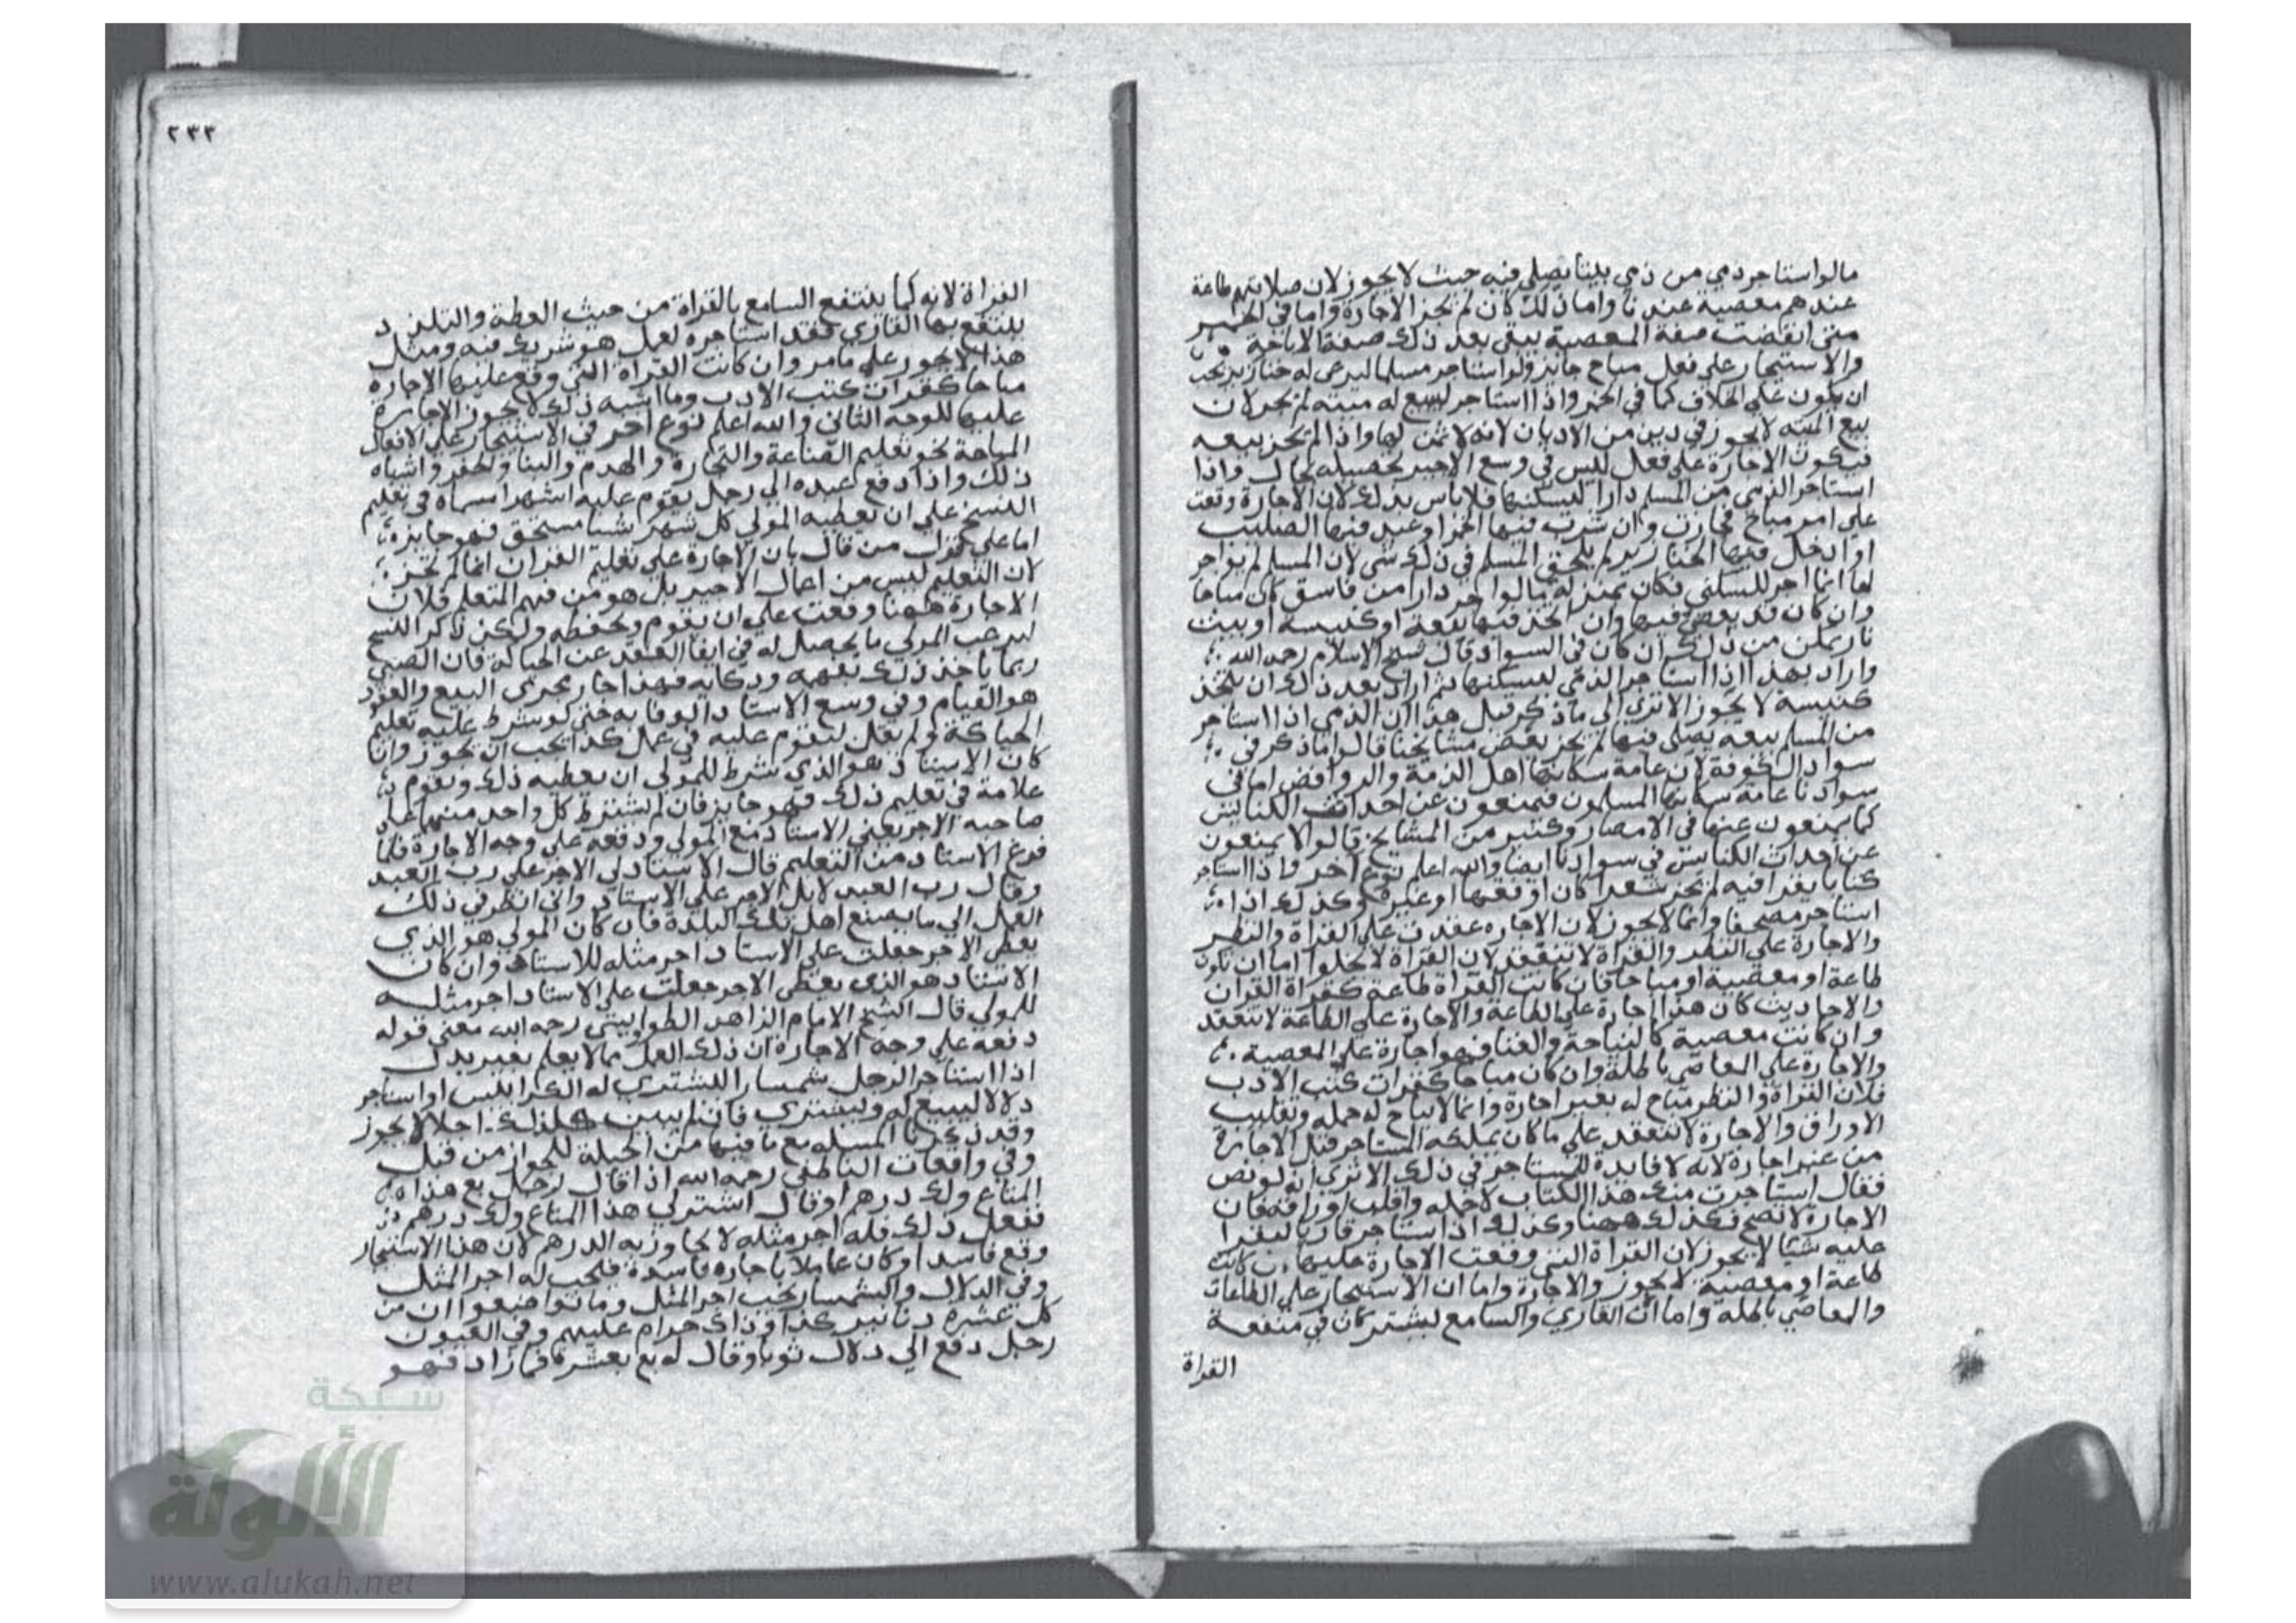 مالو استاجر ذمي من ذمي بيتا يصلي فيه حيث لا يجوز لان صلاتهم طاعة
عندهم معصية عندنا واما ذلك كان لم تجز الاجارة واما في الخمر
متى انقضت صفة المعصية يبقى بعد ذلك صفة الاباحة
والاستيجار على فعل مباح جائز ولو استاجر مسلما ليرعى له خنازير يجب
ان يكون على الخلاف كما في الخمر واذا استاجر ليبيع له ميتة لم يجز لان
بيع الميتة لا يجوز في دين من الاديان لانه لا ثمن لها واذا لم يجز بيعه
فيكون الاجارة على فعل ليس في وسع الاجير تحصيله بحال واذا
استاجر الذمي من المسلم دارا ليسكنها فلا باس بذلك لان الاجارة وقعت
على امر مباح فجازت وان شرب فيها الخمر او عبد فيها الصليب
او ادخل فيها الخنازير لم يلحق المسلم في ذلك شي لان المسلم لم يواجر
لها انما اجر للسكنى فكان بمنزلة مالو اجر دارا من فاسق كان مباحا
وان كان قد يعصي فيها وان اتخذ فيها بيعة او كنيسة او بيت
نار يمكن من ذلك ان كان في السواد قال شيخ الاسلام رحمه الله
واراد بهذا اذا استاجر الذمي ليسكنها ثم اراد بعد ذلك ان يتخذ
كنيسة لا يجوز الا ترى الى ما ذكر قبل هذا ان الذمي اذا استاجر
من المسلم بيعه يصلي فيها لم يجز بعض مشايخنا قالوا ما ذكر في
سواد الكوفة لان عامة سكانها اهل الذمة والروافض اما في
سوادنا عامة سكانها المسلمون فيمنعون عن احداث الكنايس
كما يمنعون عنها في الامصار وكثير من المشايخ قالوا لا يمنعون
عن احداث الكنايس في سوادنا ايضا والله اعلم نوع اخر واذا استاجر
كتابا يقرا فيه لم يجز شعرا كان او فقها او غيره وكذلك اذا
استاجر مصحفا وانما لا يجوز لان الاجاره عقدت على القراة والنظر
والاجارة على النظر والقراة لا تنعقد لان القراة لا تخلوا اما ان تكون
طاعة او معصية او مباحا فان كانت القراة طاعة كقراة القران
والاحاديث كان هذا اجارة على الطاعة والاجارة على الطاعة لا تنعقد
وان كانت معصية كالنياحة والغنا فهو اجارة على المعصية
والاجارة على المعاصي باطلة وان كان مباحا كقرات كتب الادب
فلان القراة والنظر مباح له بغير اجارة وانما لا يباح له حمله وتقليب
الاوراق والاجارة لا تنعقد على ما كان يملكه المستاجر قبل الاجارة
من غير اجارة لانه لا فايدة للمستاجر في ذلك الا ترى انه لو نص
فقال استاجرت منك هذا الكتاب لاحمله واقلب اوراقه فان
الاجارة لا تصح فكذلك ههنا وكذلك اذا استاجر قاريا ليقرا
عليه شيئا لا يجوز لان القراة التي وقعت الاجارة عليها كانت
طاعة او معصية لا يجوز والاجارة واما ان الاستيجار على الطاعات
والمعاصي باطله واما ان القاري والسامع ليشتركان في منفعة
القراة
٢٣٣
القراة لانه كما ينتفع السامع بالقراة من حيث العظة والتلذذ
ينتفع بها القاري فقد استاجره لعمل هو شريك فيه ومثل
هذا لا يجوز على ما مر وان كانت القراة التي وقع عليها الاجارة
مباحا كقرات كتب الادب وما اشبه ذلك لا يجوز الاجارة
عليها للوجه الثاني والله اعلم نوع اخر في الاستيجار على الافعال
المباحة نحو تعليم الصناعة والتجارة والهدم والبنا والحفر واشباه
ذلك واذا دفع عبده الى رجل يقوم عليه اشهرا مسماه في تعليم
النسخ على ان يعطيه المولى كل شهر شيا مستحق فهو جايزة
اما على قول من قال بان الاجارة على تعليم القران انما لم تجز
لان التعليم ليس من اعمال الاجير بل هو من فهم المتعلم فلان
الاجارة ههنا وقعت على ان يقوم ويحفظه ولكن ذكر النسج
ليرغب المولى ما يحصل له في ايفا العقد عن الحياكة فان الصبي
ربما ياخذ ذلك بفهمه وذكايه فهذا جار مجرى البيع والعقود
هو القيام وفي وسع الاستاد الوفا به حتى لو شرط عليه تعليم
الحياكة ولم يقل ليقوم عليه في عمل كذا يجب ان يجوز وان
كان الاستاد هو الذي شرط للمولى ان يعطيه ذلك ويقوم
علامة في تعليم ذلك فهو جايز فان لم يشترط كل واحد منهما على
صاحبه الاجر يعني الاستاد مع المولى ودفعه على وجه الاجارة فلما
فرغ الاستاد من التعليم قال الاستاد لي الاجر على رب العبد
وقال رب العبد لا بل الاجر على الاستاد واني انظر في ذلك
العمل الى ما يصنع اهل تلك البلدة فان كان المولى هو الذي
يعطى الاجر جعلت على الاستاد اجر مثله للاستاد وان كان
الاستاد هو الذي يعطى الاجر جعلت على الاستاد اجر مثله
للمولي قال الشيخ الامام الزاهد الطواويسي رحمه الله معنى قوله
دفعه على وجه الاجارة ان ذلك العمل مما لا يعلم بغير بدل
اذا استاجر الرجل شمسارا ليشتري له الكرابيس او استاجر
دلالا ليبيع له ويشتري فان لم يبين لذلك اجلا لا يجوز
وقد ذكرنا المسله مع ما فيها من الحيلة للجواز من قبل
وفي واقعات الناطفي رحمه الله اذا قال رجل بع هذا
المتاع ولك درهم او قال اشتر لي هذا المتاع ولك درهم
ففعل ذلك فله اجر مثله لا يجاوز به الدرهم لان هذا الاستيجار
وقع فاسدا وكان عاملا باجاره فاسدة فيجب له اجر المثل
وفي الدلال والشمسار يجب اجر المثل وما تواضعوا ان من
كل عشرة دنانير كذا فذاك حرام عليهم وفي العيون
رجل دفع الي دلال ثوبا وقال له بع بعشرة فما زاد فهو
شبكة
الألوكة
www.alukah.net